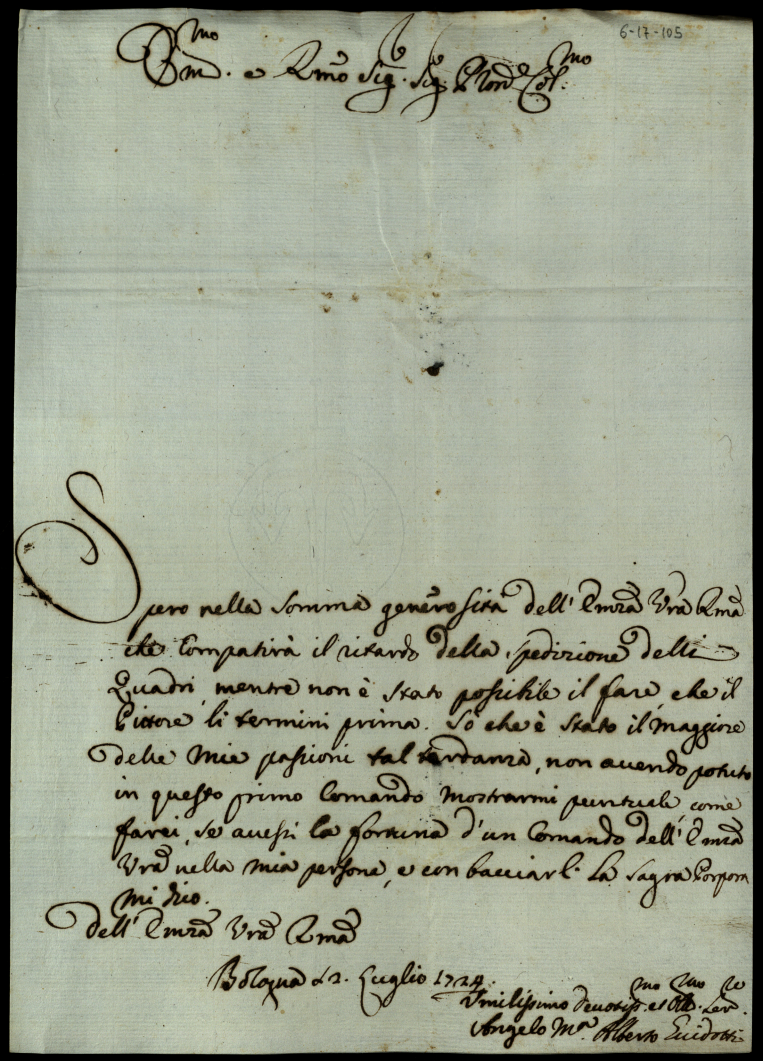 6-17-105
Em.mo e R.mo Sig.r Sig.r P'ron Col.mo
Spero nella somma generosità dell' Emza Vra Rma
che compatirà il ritardo della spedizione delli
Quadri, mentre non è stato possibile il fare, che il
Pittore li termini prima. Sò che è stato il maggiore
delle mie passioni tal tardanza, non avendo potuto
in questo primo Comando mostrarmi puntuale come
farei, se avessi la fortuna d'un Comando dell' Emza
Vra nella mia persone, e con bacciarl. la Sagra Porpora
mi dico.
dell' Emza Vra Rma
Bologna d 2. Luglio 1724.
Vmilissimo Devotiss.mo et Obb.mo Ser.re
Angelo M.a Alberto Guidotti